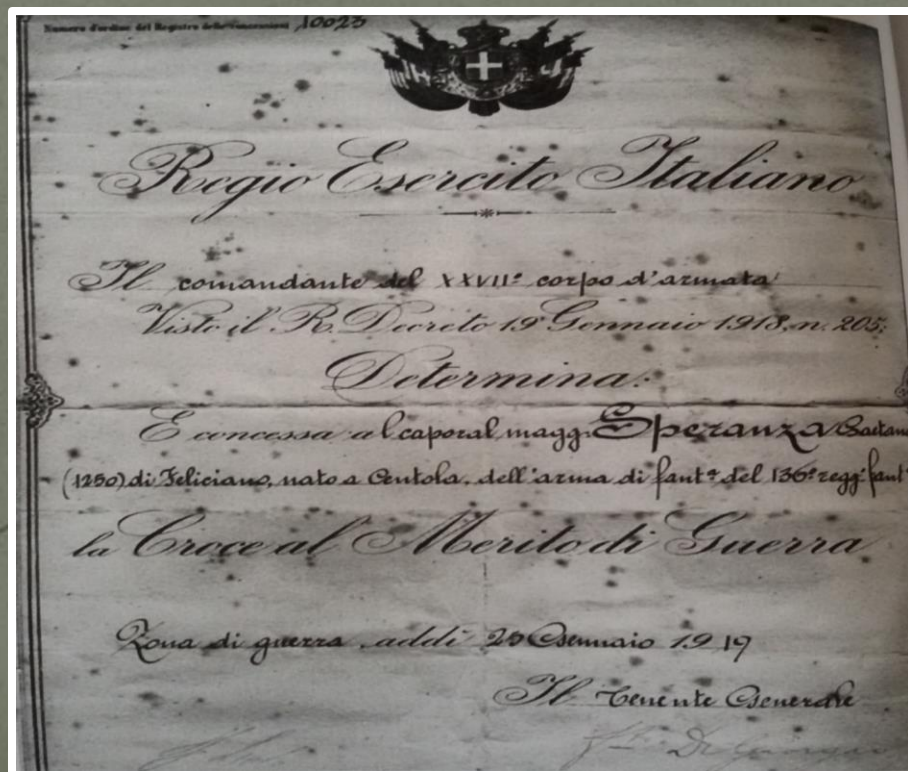 Numero d'ordine del Registro delle concessioni 10023
Regio Esercito Italiano
Il comandante del XXVII° corpo d'armata
Visto il R. Decreto 19 Gennaio 1918, n. 205;
Determina:
È concessa al caporal magg. Speranza Gaetano
(1290) di Feliciano, nato a Centola, dell'arma di fant.a del 136° regg. fant
la Croce al Merito di Guerra
Zona di guerra, addì 25 Gennaio 1919
Il Tenente Generale